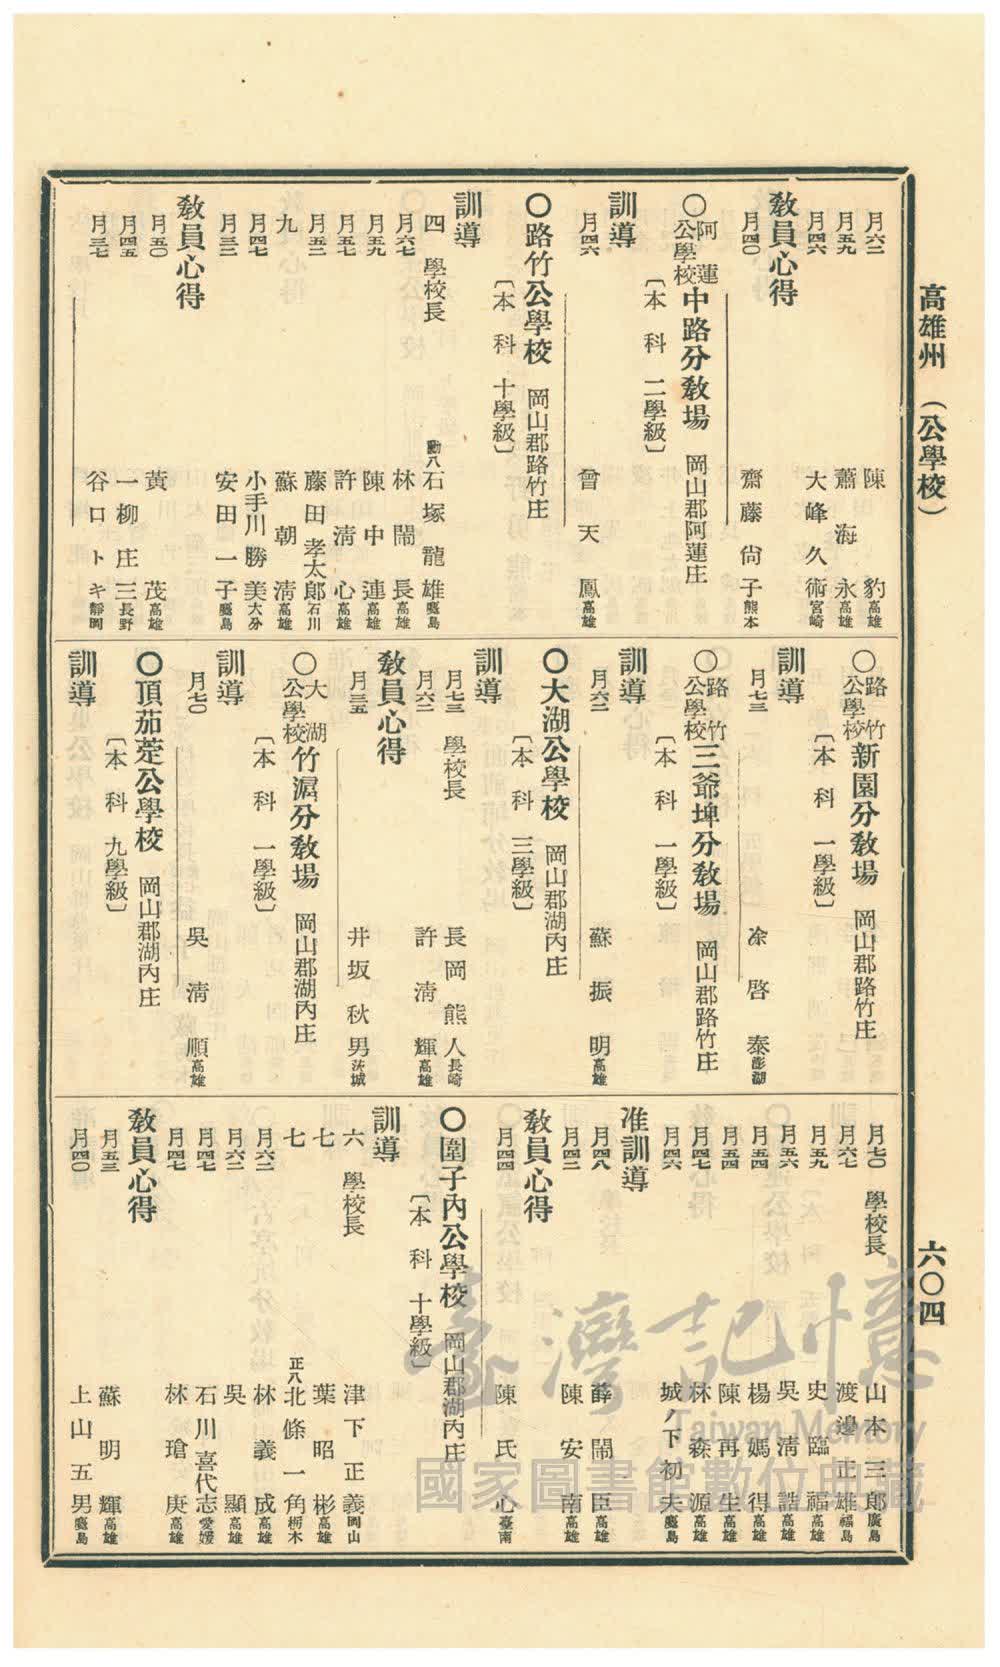 高雄州 (公學校)
六〇四
月六二 陳 豹 高雄
月五九 蕭海永 高雄
月四六 大峰久術 宮崎
教員心得
月四〇 齋藤尙子 熊本
〇阿蓮公學校中路分教場 岡山郡阿蓮庄
〔本科 二學級〕
訓導
月四六 曾天鳳 高雄
〇路竹公學校 岡山郡路竹庄
〔本科 十學級〕
訓導
四 學校長 勳八 石塚龍雄 鹿兒島
月六七 林鬧長 高雄
月五九 陳中連 高雄
月五七 許淸心 高雄
月五二 藤田孝太郞 石川
九 蘇朝淸 高雄
月四七 小手川勝美 大分
月三二 安田一子 鹿兒島
教員心得
月五〇 黃 茂 高雄
月四五 一柳庄三 長野
月三七 谷口トキ 靜岡
〇路竹公學校新園分教場 岡山郡路竹庄
〔本科 一學級〕
訓導
月七三 凃啓泰 澎湖
〇路竹公學校三爺埤分教場 岡山郡路竹庄
〔本科 一學級〕
訓導
月六二 蘇振明 高雄
〇大湖公學校 岡山郡湖內庄
〔本科 三學級〕
訓導
月七三 學校長 長岡熊人 長崎
月六二 許淸輝 高雄
教員心得
月三五 井坂秋男 茨城
〇大湖公學校竹滬分教場 岡山郡湖內庄
〔本科 一學級〕
訓導
月七〇 吳淸順 高雄
〇頂茄萣公學校 岡山郡湖內庄
〔本科 九學級〕
訓導
月七〇 學校長 山本三郞 廣島
月六七 渡邊正雄 福島
月五九 史臨福 高雄
月五六 吳淸誥 高雄
月五四 楊媽得 高雄
月五四 陳再生 高雄
月四七 林森源 高雄
月四六 城ノ下初夫 鹿兒島
准訓導
月四八 薛鬧臣 高雄
月四二 陳安南 高雄
教員心得
月四四 陳氏心 臺南
〇圍子內公學校 岡山郡湖內庄
〔本科 十學級〕
訓導
六 學校長 津下正義 岡山
七 葉昭彬 高雄
七 正八 北條一角 栃木
月六二 林義成 高雄
月六二 吳 顯 高雄
月四七 石川喜代志 愛媛
月四七 林瑲庚 高雄
教員心得
月五三 蘇明輝 高雄
月四〇 上山五男 鹿兒島
臺灣記憶
Taiwan Memory
國家圖書館數位典藏